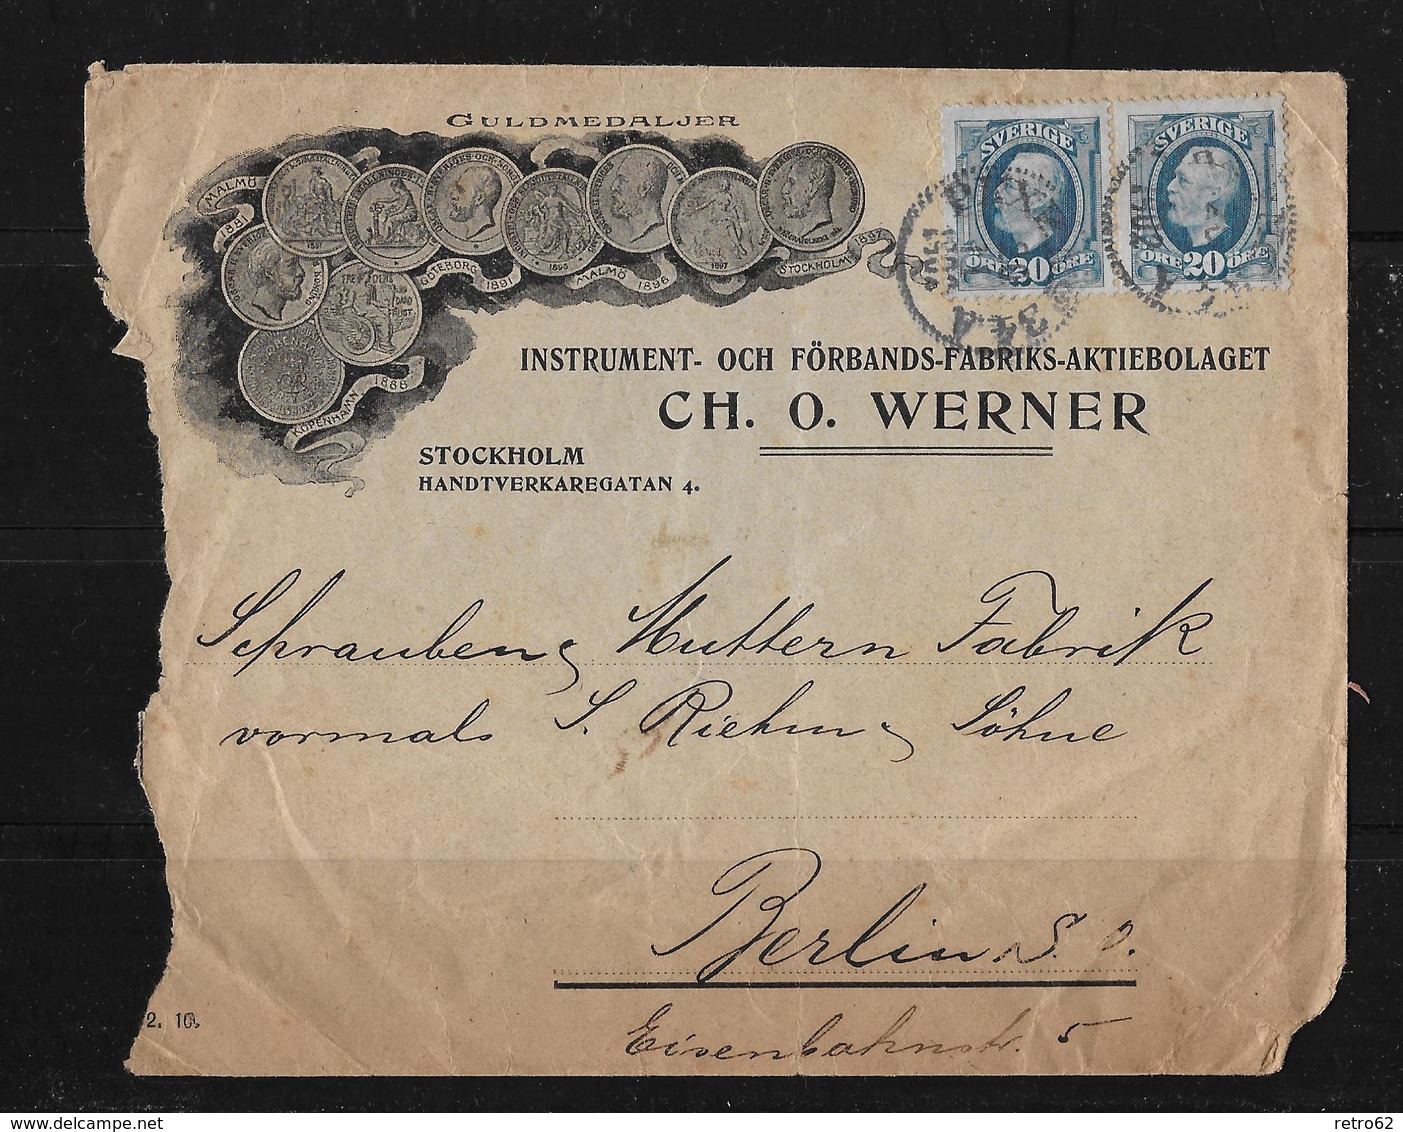 GULDMEDALJER
MALMÖ
1891
GÖTEBORG
1891
MALMÖ
1896
STOCKHOLM 1897
KÖPENHAMN 1888
SVERIGE
ÖRE 20 ÖRE
SVERIGE
ÖRE 20 ÖRE
INSTRUMENT- OCH FÖRBANDS-FABRIKS-AKTIEBOLAGET
CH. O. WERNER
STOCKHOLM
HANDTVERKAREGATAN 4.
Schrauben & Muttern Fabrik
vormals S. Riehm & Söhne
Berlin S. O.
Eisenbahnstr. 5
2. 10.
www.delcampe.net
retro62